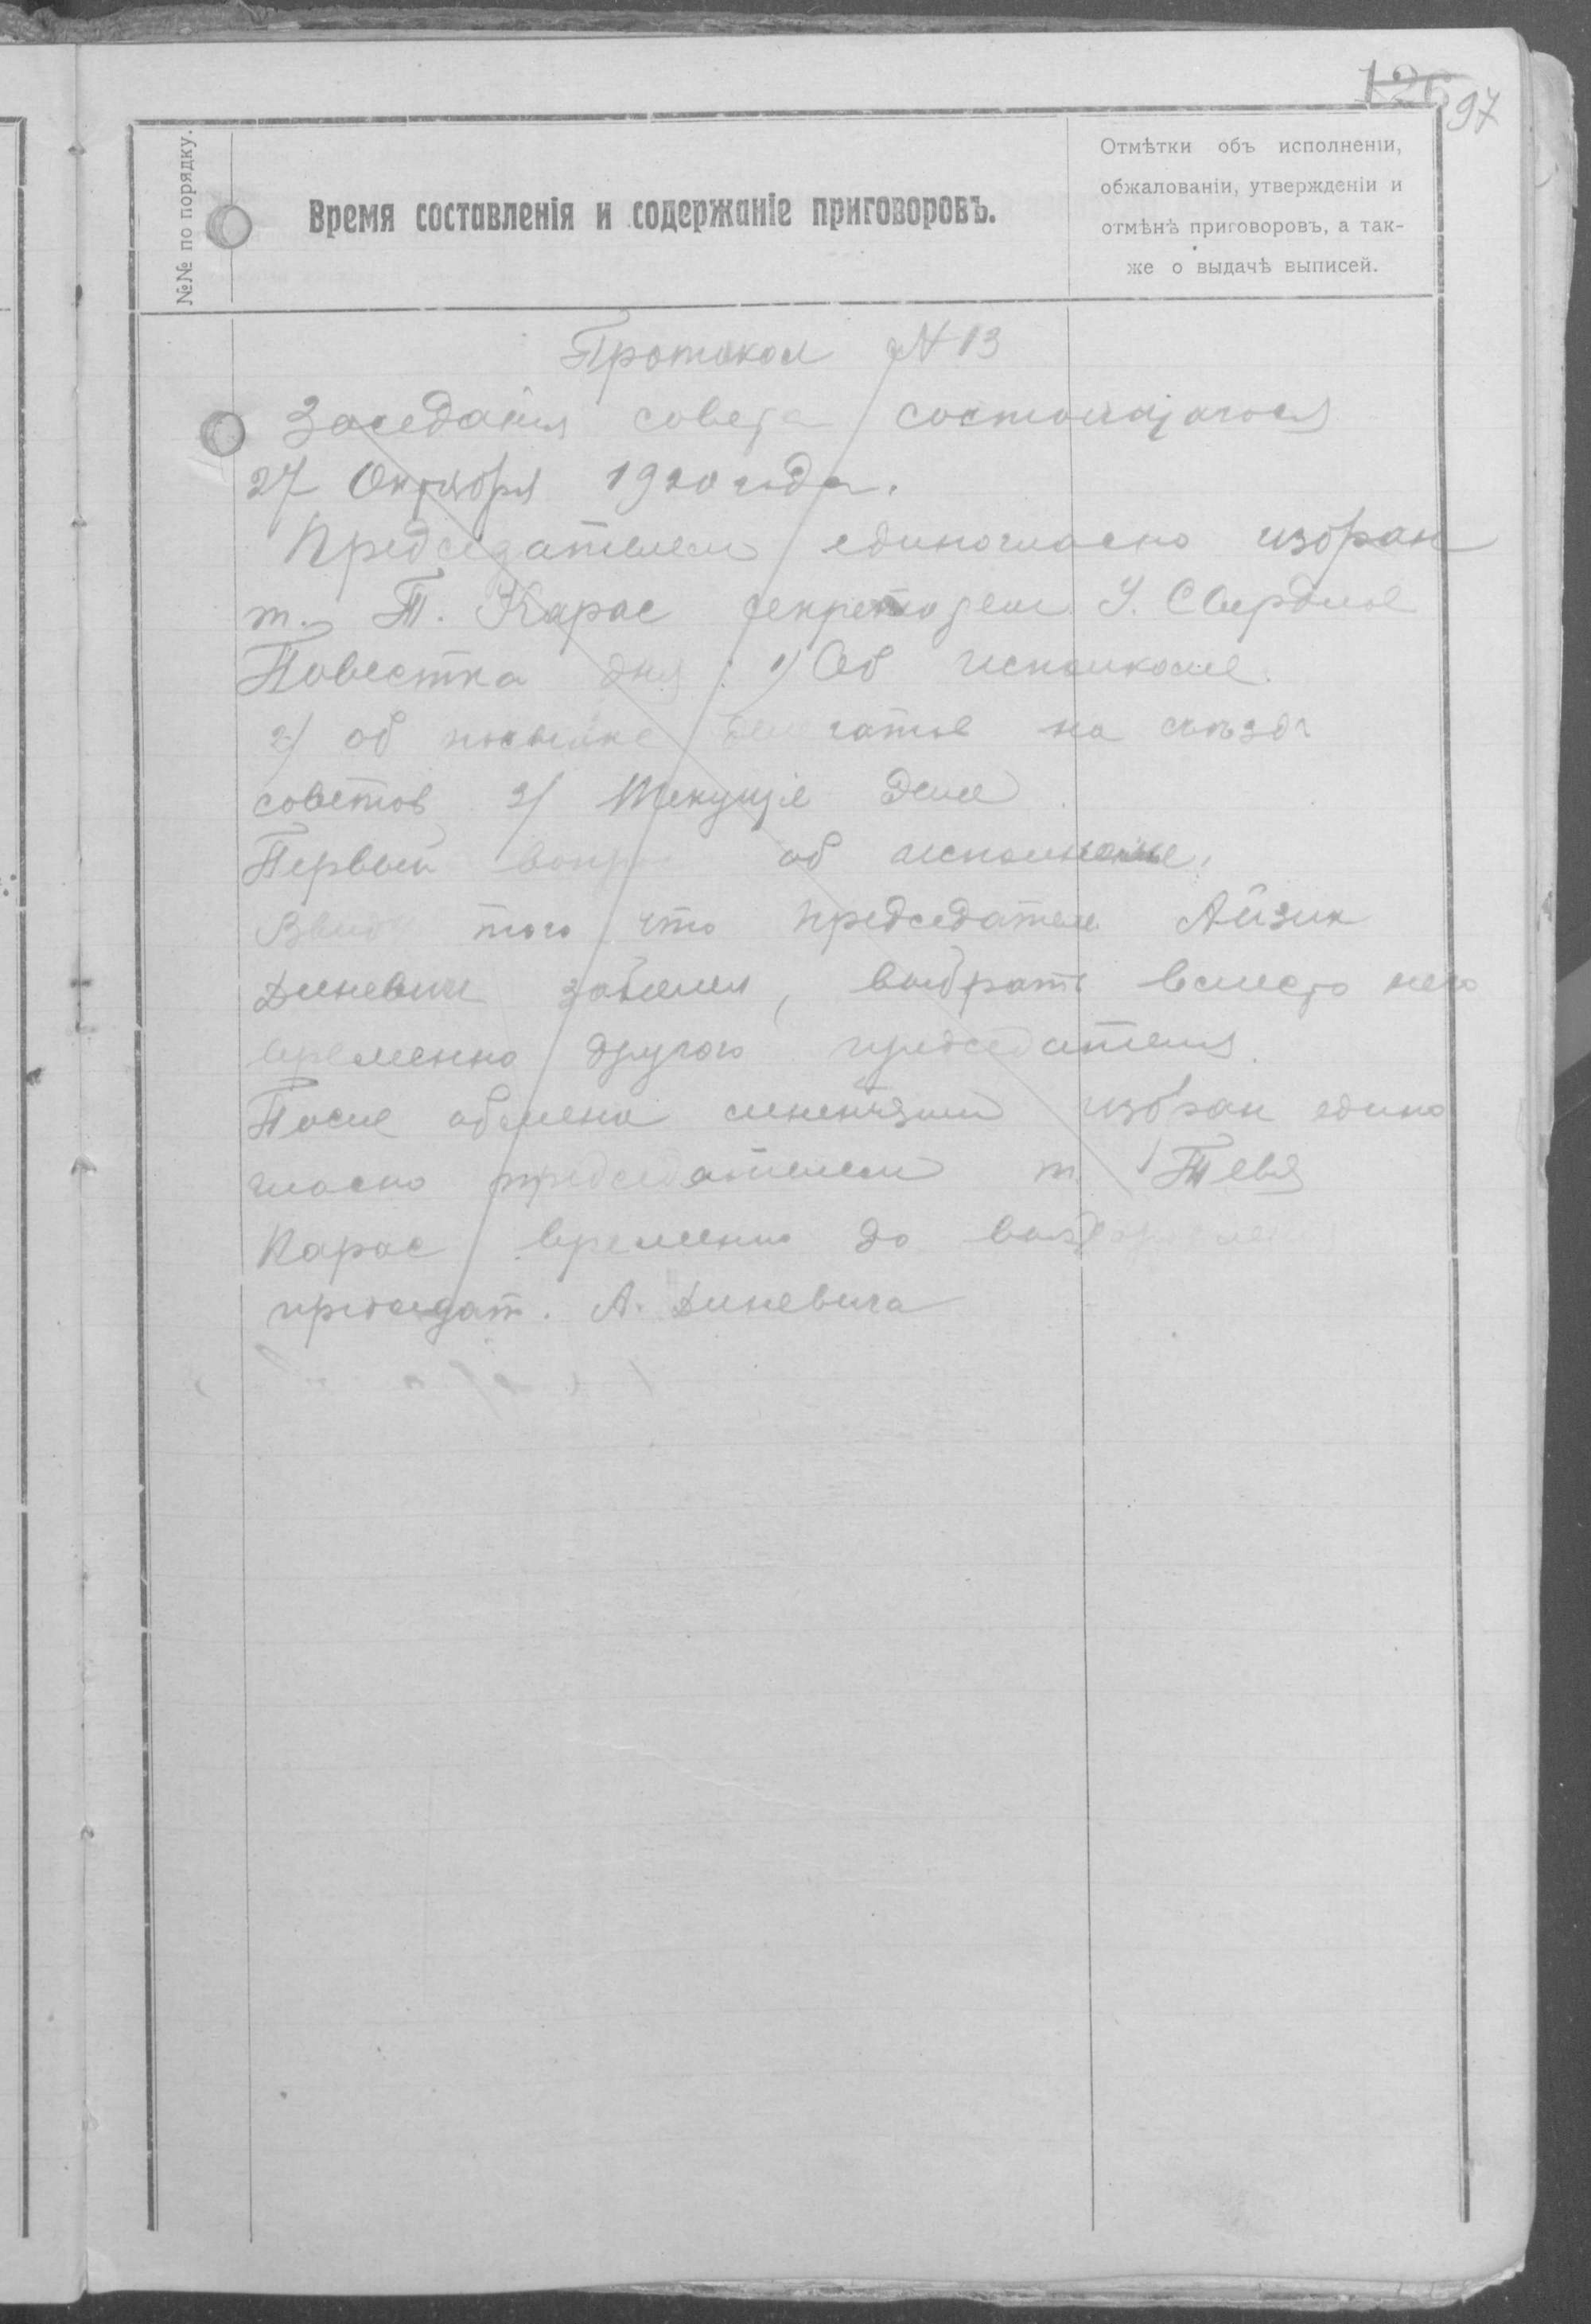 126 97
№№ по порядку.
Время составленія и содержаніе приговоровъ.
Отмѣтки объ исполненіи,
обжалованіи, утвержденіи и
отмѣнѣ приговоровъ, а так-
же о выдачѣ выписей.
Протокол № 13
Заседания совета состоящагося
27 Октября 1920 года.
Председателем единогласно избран
т. Т. Карас секретарем У. Свердлов
Повестка дня: 1) Об исполкоме.
2) об посылке делегатов на съезд
советов 3) Текущіе дела
Первый вопр об исполкоме.
Ввид того что председатель Айзик
Диневич заболел, выбрать вместо него
временно другого председателя.
После обмена мнениями избран едино
гласно председателем т. Тевя
Карас временно до
председат. А. Диневича